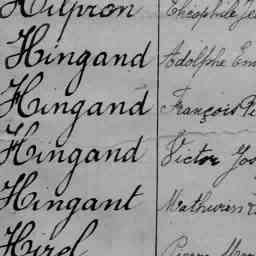 Hilpron Théophile
Hingand Adolphe
Hingand François
Hingand Victor
Hingant Mathurin
Hirel Pierre